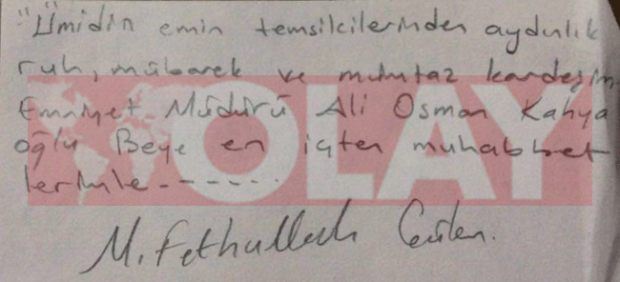 "Ümidin emin temsilcilerinden aydınlık
ruh, mübarek ve mümtaz kardeşim
Emniyet Müdürü Ali Osman Kahya
oğlu Beye en içten muhabbet
lerimle-------
M. Fethullah Gülen.
OLAY